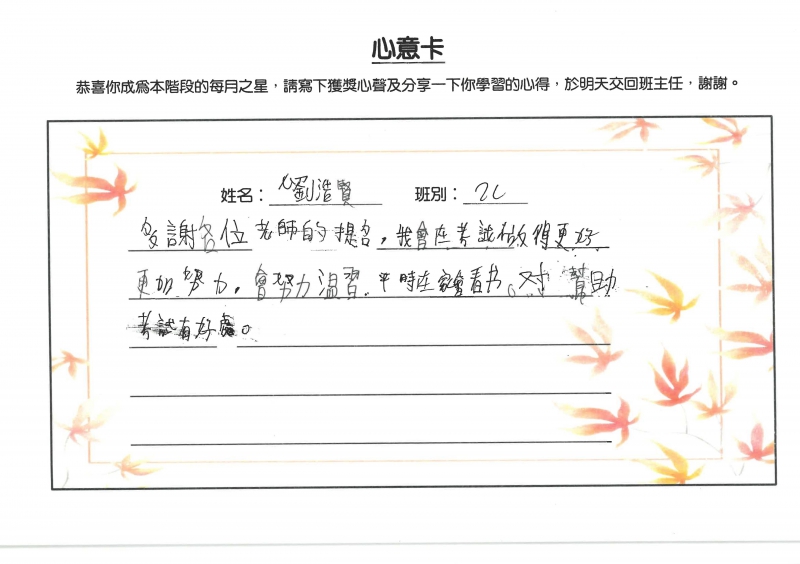 心意卡
恭喜你成為本階段的每月之星，請寫下獲獎心聲及分享一下你學習的心得，於明天交回班主任，謝謝。
姓名：劉浩賢 班別：2C
多謝各位老師的提名，我會在考試做得更好
更加努力。會努力溫習，平時在家會看书。对 幫助
考試有好處。